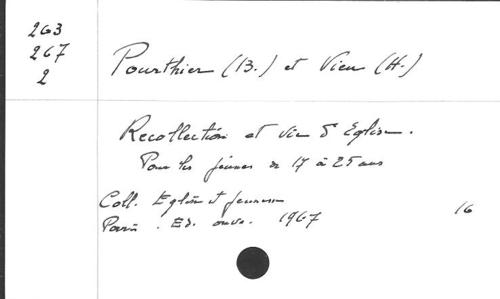 263
267
2
Pourthier (B.) et Vieu (H.)
Recollection et vie d'Eglise.
Pour les jeunes de 17 à 25 ans
Coll. Eglise et jeunesse
Paris. Ed. ouvr. 1967
16